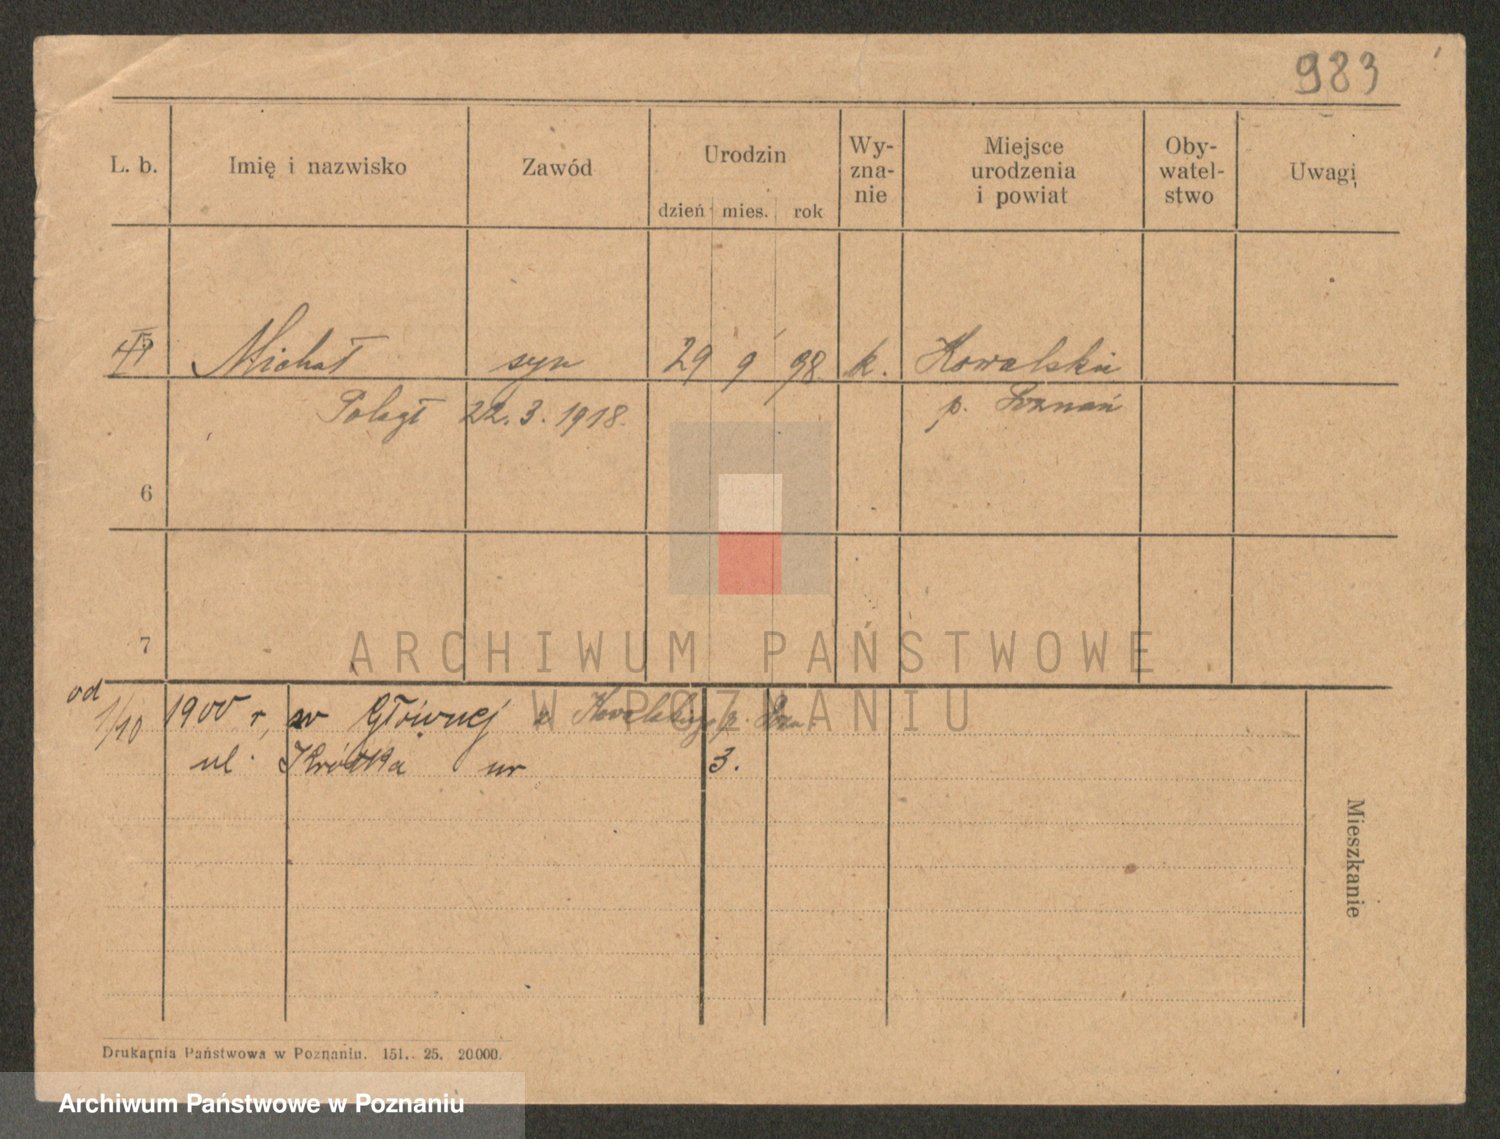 983
L. b. Imię i nazwisko Zawód Urodzin Wy-zna-nie Miejsce urodzenia i powiat Oby-watel-stwo Uwagi
dzień mies. rok
5 Michał syn 29 9 98 k. Kowalskie
Poległ 22.3.1918. p. Poznań
6
7
ARCHIWUM PAŃSTWOWE
W POZNANIU
od 1/10 1900 r, w Głównej z Kowalskiego p. Pozn.
ul. Krótka nr 3.
Mieszkanie
Drukarnia Państwowa w Poznaniu. 151. 25. 20000.
Archiwum Państwowe w Poznaniu